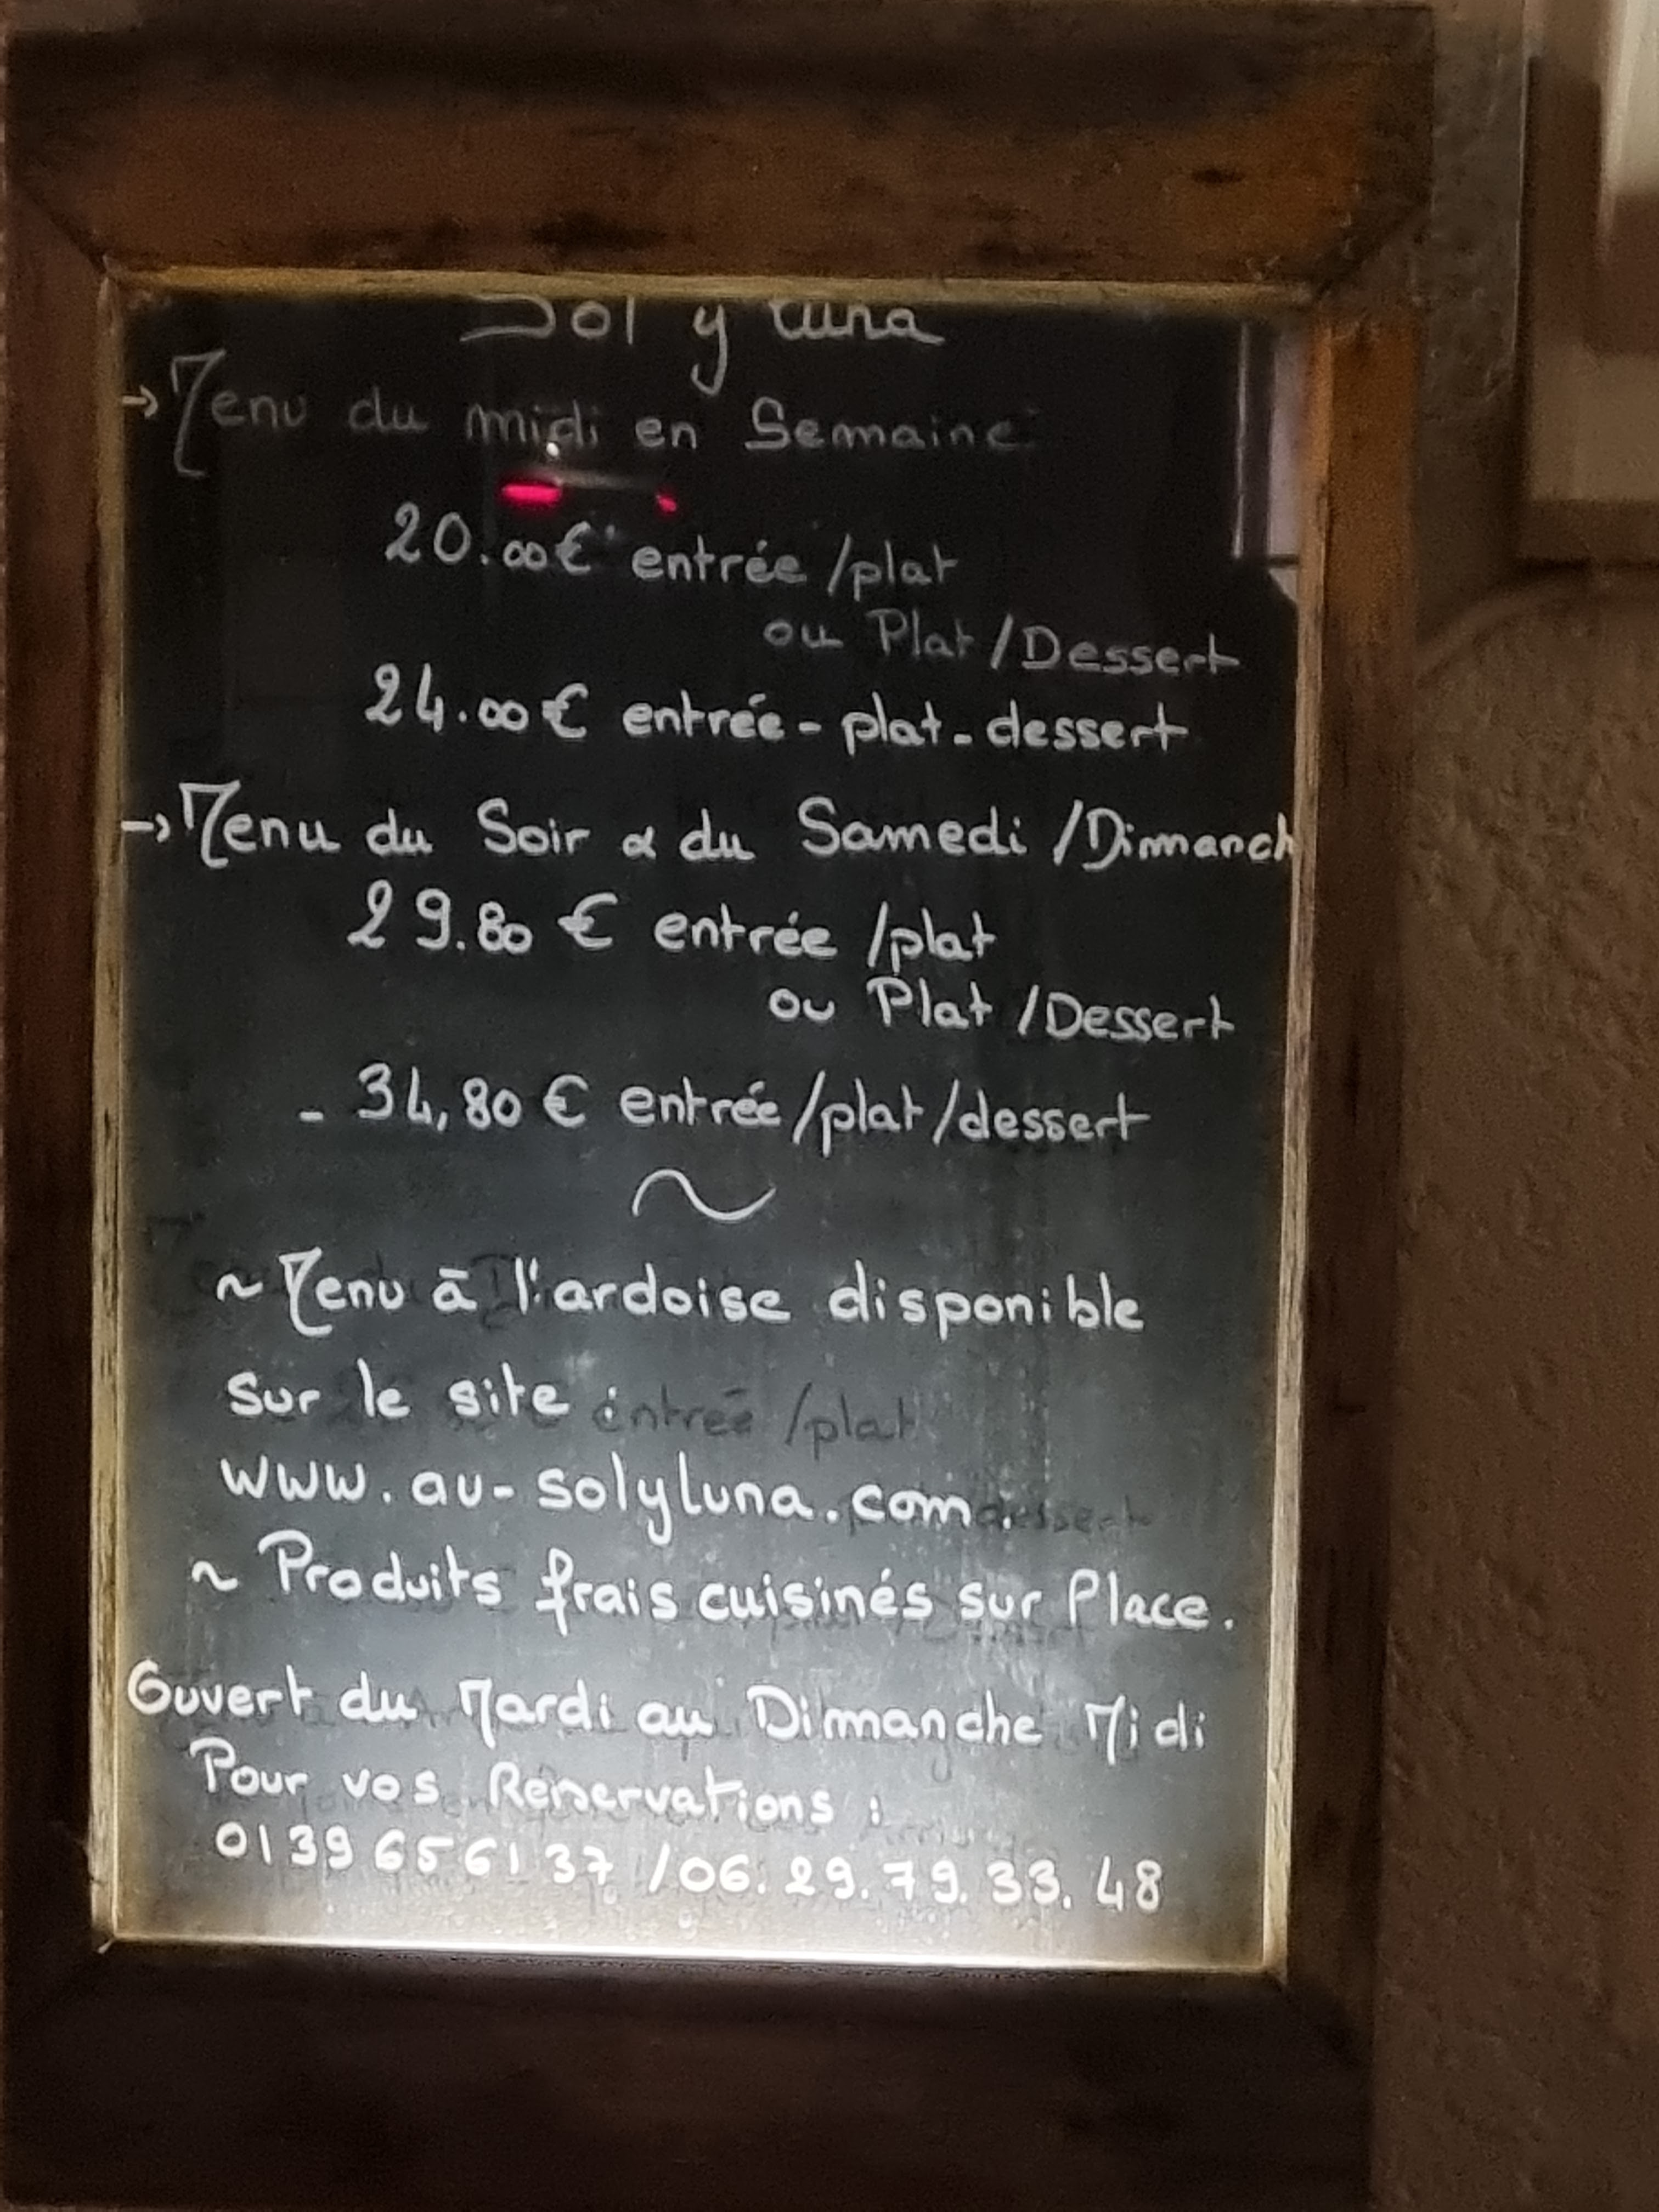 Sol y luna
→ Menu du midi en Semaine
20.00€ entrée /plat
ou Plat /Dessert
24.00€ entrée - plat - dessert
→ Menu du Soir & du Samedi /Dimanch
29.80 € entrée /plat
ou Plat /Dessert
- 34,80 € entrée /plat /dessert
~
~ Menu à l'ardoise disponible
sur le site entrée /plat
www.au-solyluna.com. dessert
~ Produits frais cuisinés sur Place.
Ouvert du Mardi au Dimanche Midi
Pour vos Réservations :
01 39 65 61 37 /06.29.79.33.48